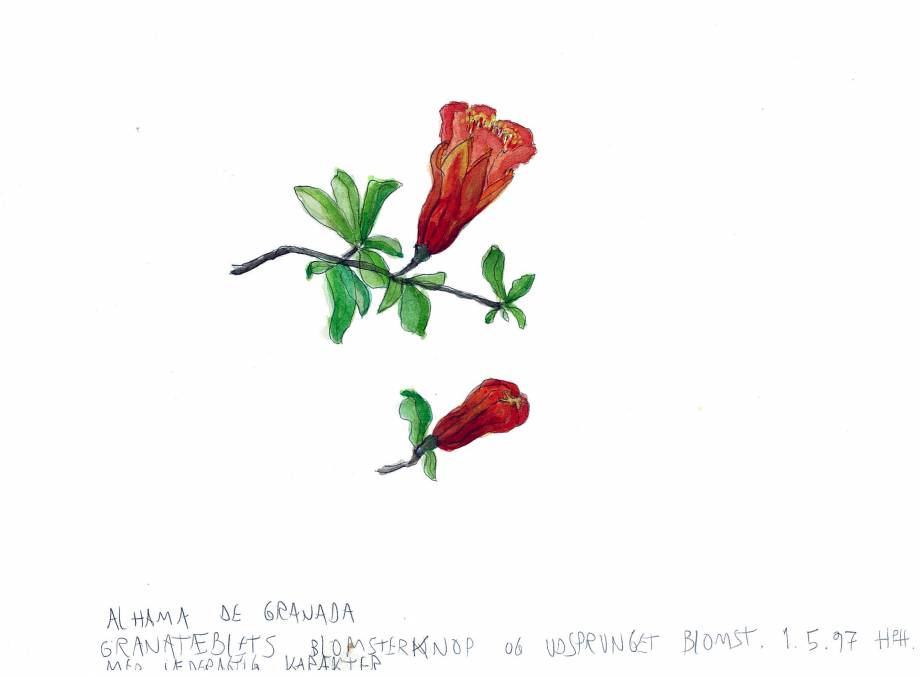 ALHAMA DE GRANADA
GRANATÆBLETS BLOMSTERKNOP OG UDSPRUNGET BLOMST. 1.5.97 HPH.
MED LÆDERAGTIG KARAKTER